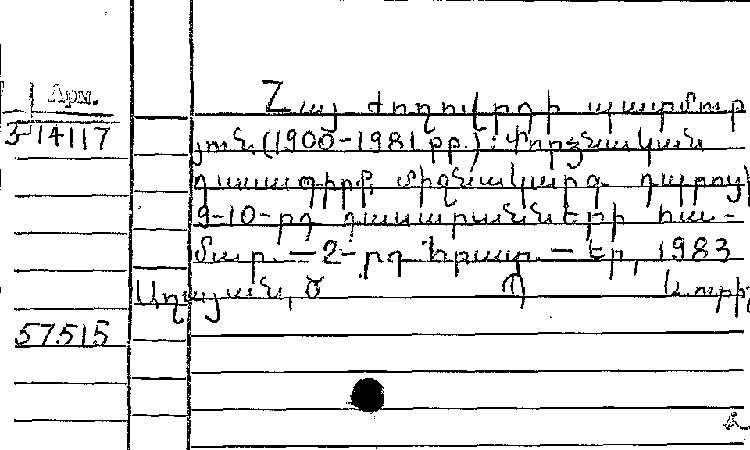 Арм.
3-14117
Հայ ժողովրդի պատմութ
յուն (1900-1981 թթ.): Փորձնական
դասագիրք միջնակարգ դպրոցի
9-10-րդ դասարանների հա-
մար. — 2-րդ հրատ. — Եր., 1983
Աղայան, Ծ
57515